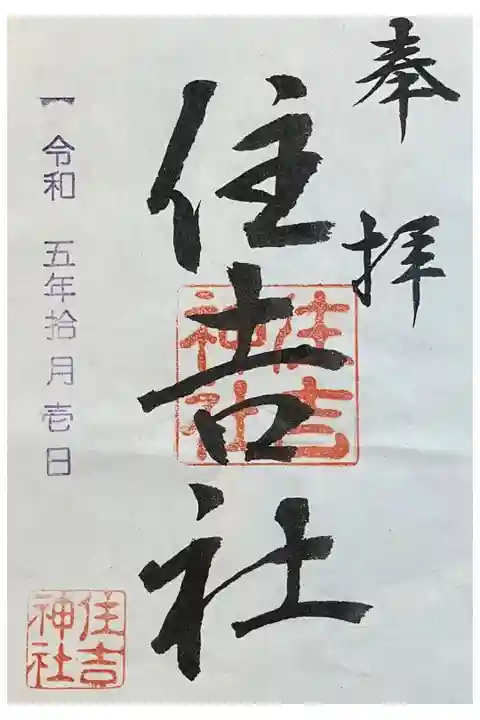 奉拝
住吉社
住吉
神社
令和 五年拾月壱日
住吉
神社